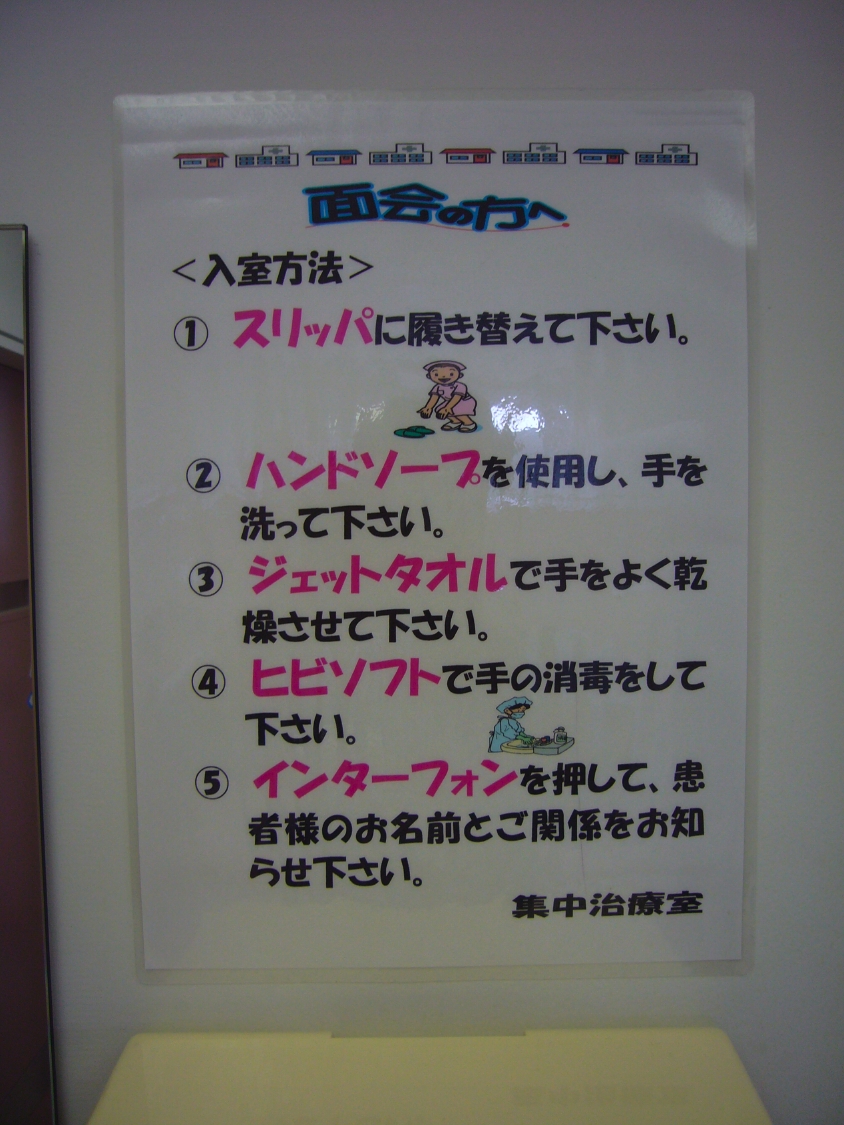 面会の方へ
＜入室方法＞
① スリッパに履き替えて下さい。
② ハンドソープを使用し、手を
洗って下さい。
③ ジェットタオルで手をよく乾
燥させて下さい。
④ ヒビソフトで手の消毒をして
下さい。
⑤ インターフォンを押して、患
者様のお名前とご関係をお知
らせ下さい。
集中治療室